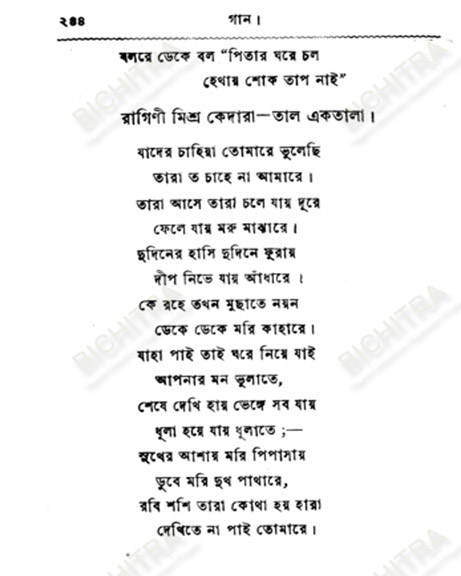 ২৪৪
গান।
বলরে ডেকে বল “পিতার ঘরে চল
হেথায় শোক তাপ নাই”
রাগিণী মিশ্র কেদারা—তাল একতালা।
যাদের চাহিয়া তোমারে ভুলেছি
তারা ত চাহে না আমারে।
তারা আসে তারা চলে যায় দূরে
ফেলে যায় মরু মাঝারে।
দুদিনের হাসি দুদিনে ফুরায়
দীপ নিভে যায় আঁধারে।
কে রহে তখন মুছাতে নয়ন
ডেকে ডেকে মরি কাহারে।
যাহা পাই তাই ঘরে নিয়ে যাই
আপনার মন ভুলাতে,
শেষে দেখি হায় ভেঙ্গে সব যায়
ধূলা হয়ে যায় ধূলাতে ;—
সুখের আশায় মরি পিপাসায়
ডুবে মরি দুখ পাথারে,
রবি শশি তারা কোথা হয় হারা
দেখিতে না পাই তোমারে।
BICHITRA
BICHITRA
BICHITRA
BICHITRA